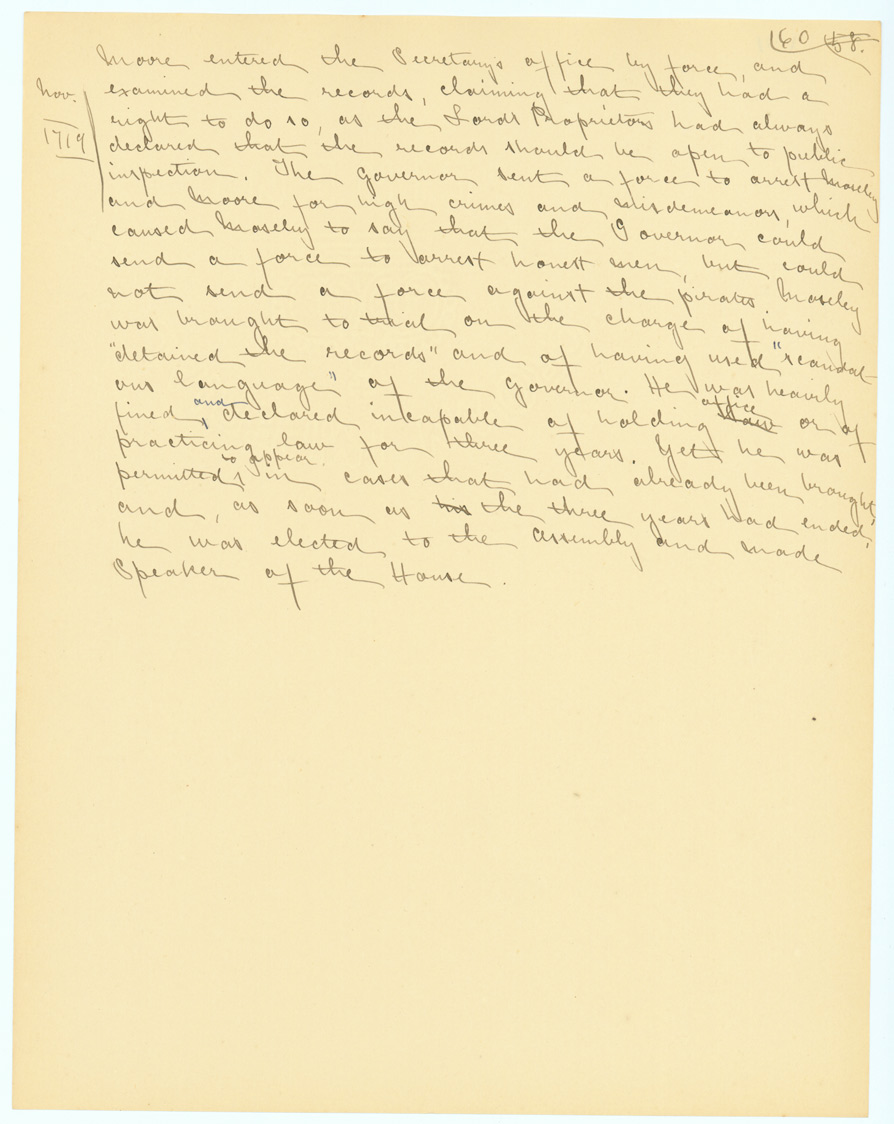 160 58.
Moore entered the Secretary's office by force, and
Nov. examined the records, claiming that they had a
1719 right to do so, as the Lords Proprietors had always
declared that the records should be open to public
inspection. The Governor sent a force to arrest Moseley
and Moore for high crimes and misdemeanors, which
caused Moseley to say that the Governor could
send a force to arrest honest men, but could
not send a force against the pirates. Moseley
was brought to trial on the charge of having
"detained the records" and of having used "scandal
ous language" of the Governor. He was heavily
fined and declared incapable of holding office or of
practicing law for three years. Yet he was
permitted to appear in cases that had already been brought,
and, as soon as his the three years had ended,
he was elected to the Assembly and made
Speaker of the House.